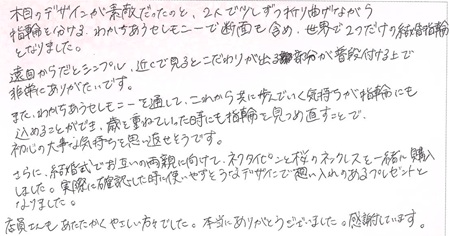 木目のデザインが素敵だったのと、2人で少しずつ折り曲げながら
指輪を分ける、わかちあうセレモニーで断面も含め、世界で2つだけの結婚指輪
となりました。
遠目からだとシンプル、近くで見るとこだわりが出る部分が普段付ける上で
非常にありがたいです。
また、わかちあうセレモニーを通して、これから共に歩んでいく気持ちが指輪にも
込めることができ、歳を重ねていった時にも指輪を見つめ直すことで、
初心の大事な気持ちを思い返せそうです。
さらに、結婚式でお互いの両親に向けて、ネクタイピンと桜のネックレスを一緒に購入
しました。実際に確認した時に使いやすそうなデザインで思い入れのあるプレゼントと
なりました。
店員さんもあたたかくやさしい方々でした。本当にありがとうございました。感謝しています。